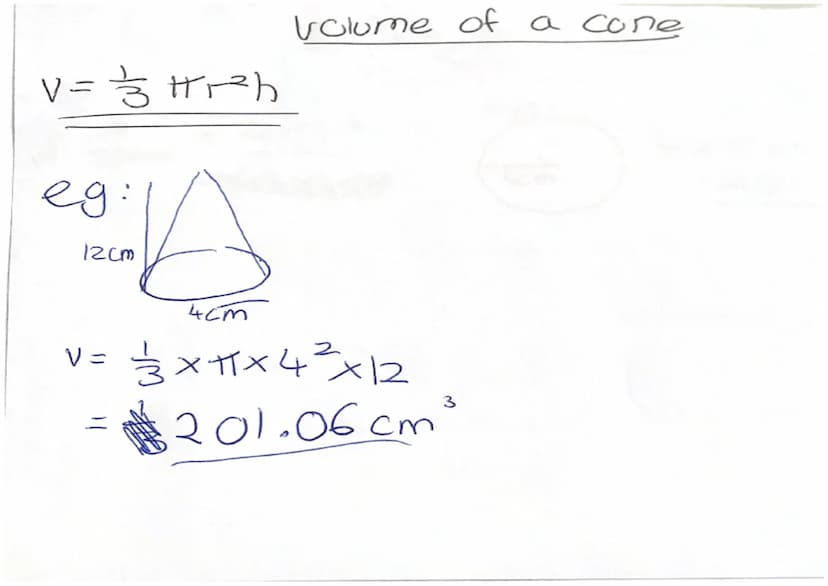 Volume of a cone
V = 1/3 πr²h
eg:
12cm
4cm
V = 1/3 × π × 4² × 12
= 201.06 cm³